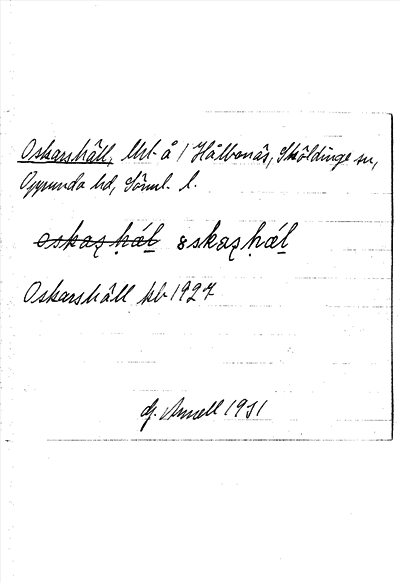 Oskarshäll, lht å / Hålbonäs, Sköldinge sn,
Oppunda hd, Söml. l.
oskaʂ ḥál̲ oskaʂ ḥál̲
Oskarshäll kb 1927
G. Arnell 1931